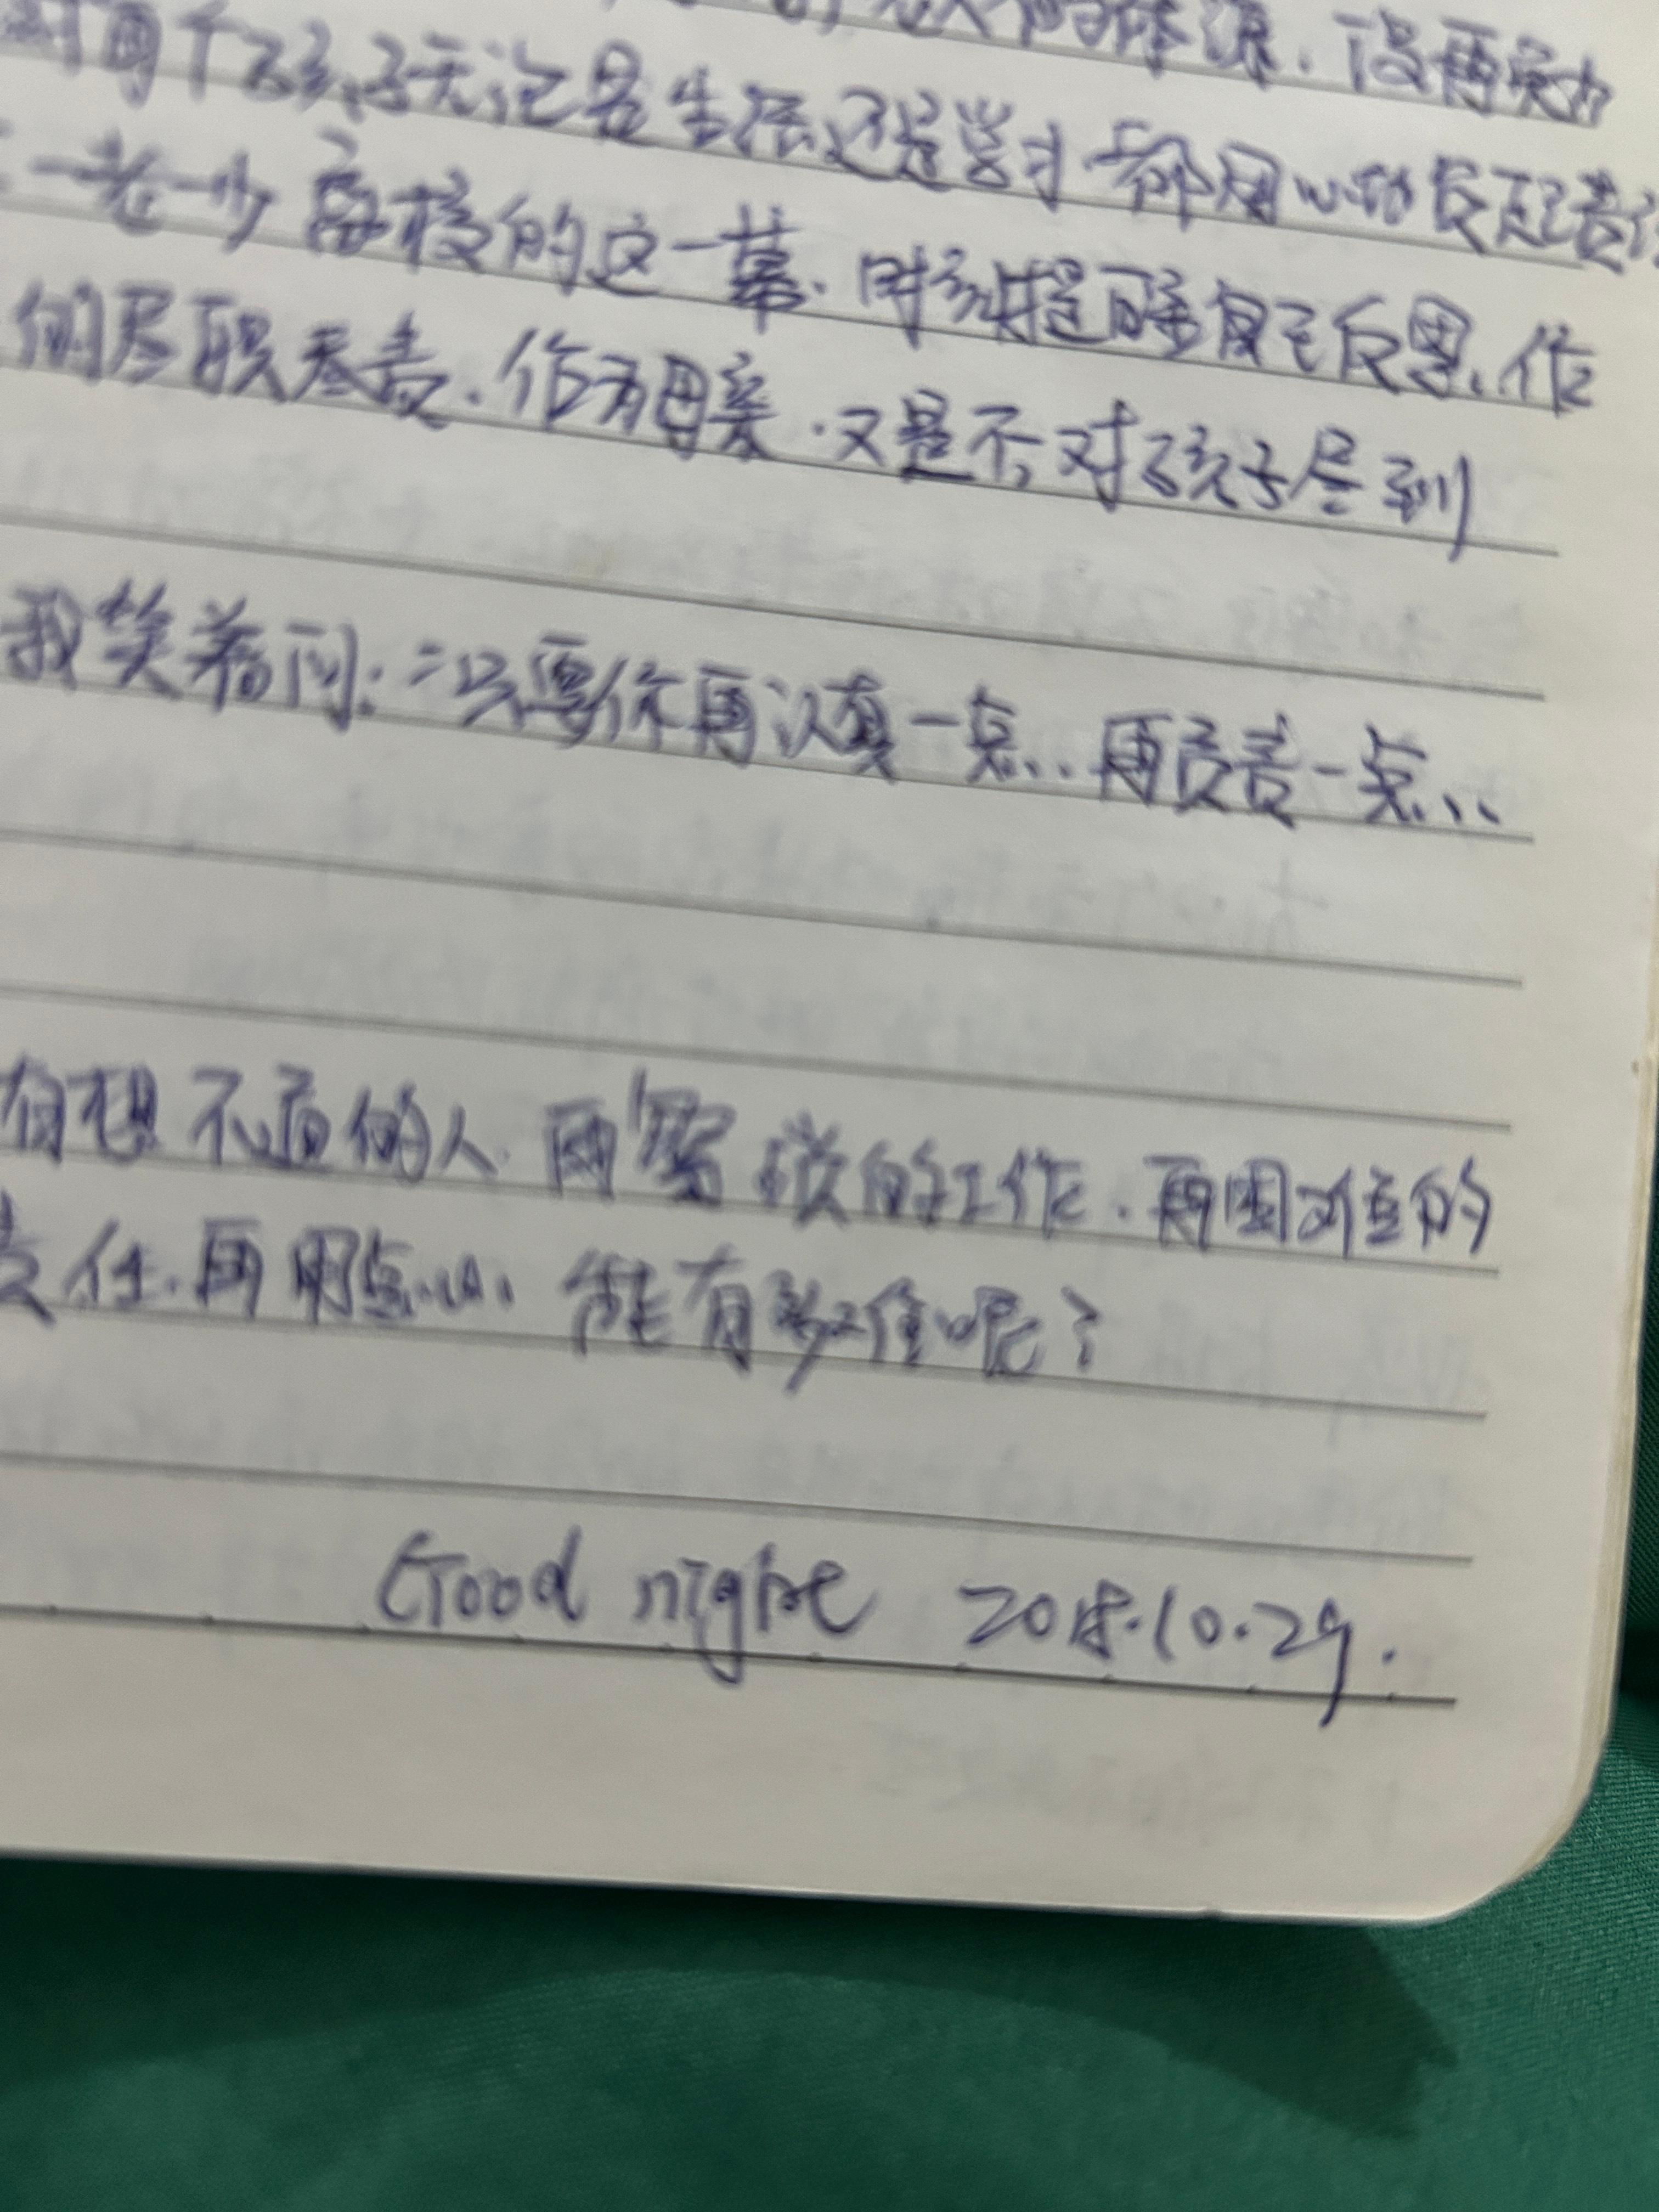 的体源、没再实力
对每个孩子无论是生活还是学习都用心
一老一少离校的这一幕、时刻提醒自己反思、作
的尽职尽责、作为母亲、又是否对孩子尽到
我笑着问：只要你再认真一点、再负责一点、
有想不通的人、再繁琐的工作、再困难的
责任、再用点心、能有多难呢？
Good night 2018.10.29.